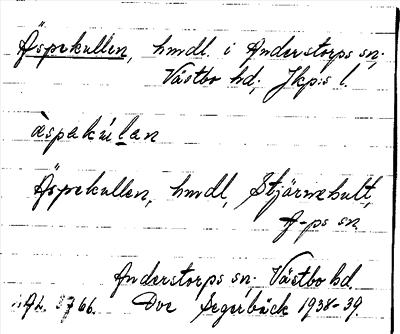 Äspekullen, hmdl. i Anderstorps sn.
Västbo hd, Jkp:s l.
èspakúlan
Äspekullen, hmdl, Stjärnehult,
A-ps sn
Anderstorps sn. Västbo hd.
Ove Segerbäck 1938-39.